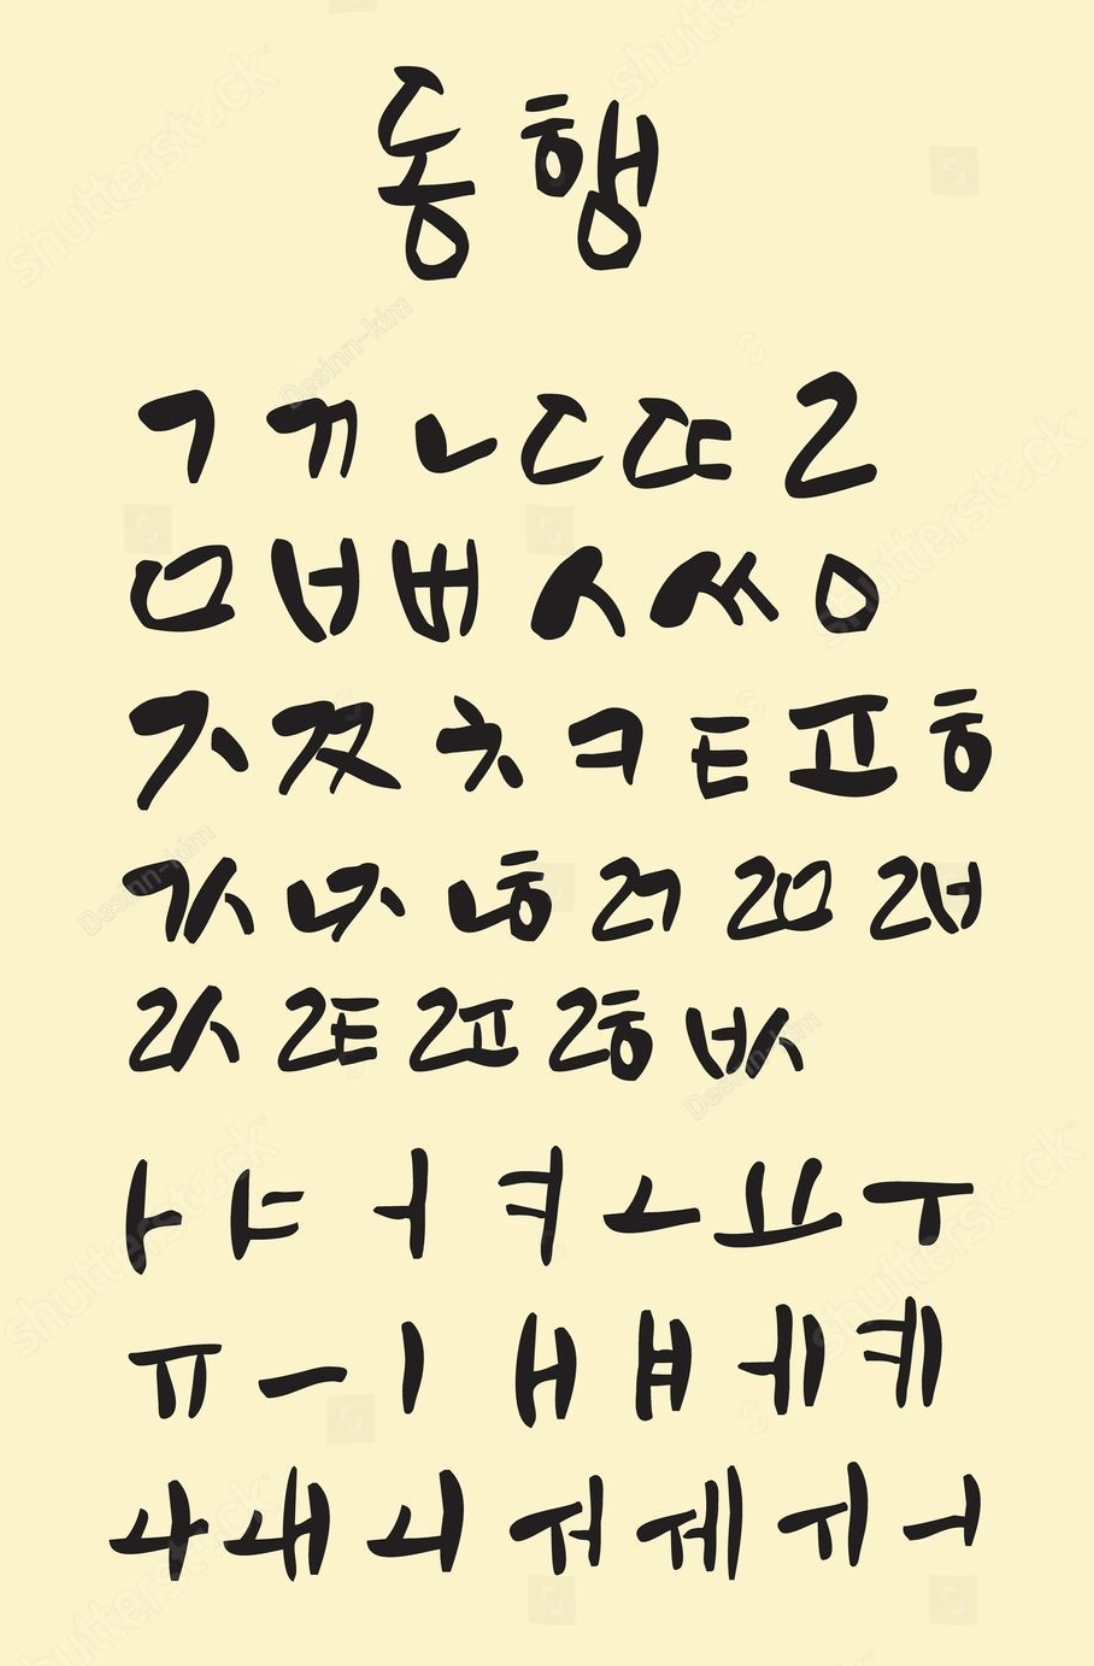 동행
ㄱ ㄲ ㄴ ㄷ ㄸ ㄹ
ㅁ ㅂ ㅃ ㅅ ㅆ ㅇ
ㅈ ㅉ ㅊ ㅋ ㅌ ㅍ ㅎ
ㄳ ㄵ ㄶ ㄺ ㄻ ㄼ
ㄽ ㄾ ㄿ ㅀ ㅄ
ㅏ ㅑ ㅓ ㅕ ㅗ ㅛ ㅜ
ㅠ ㅡ ㅣ ㅐ ㅒ ㅔ ㅖ
ㅘ ㅙ ㅚ ㅝ ㅞ ㅟ ㅢ
shutterstock
Desinn-kim